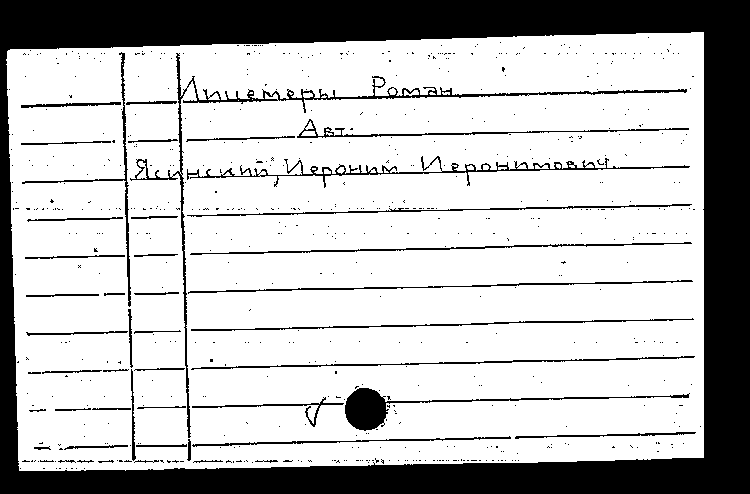 Лицемеры Роман
Авт.:
Ясинский, Иероним Иеронимович.